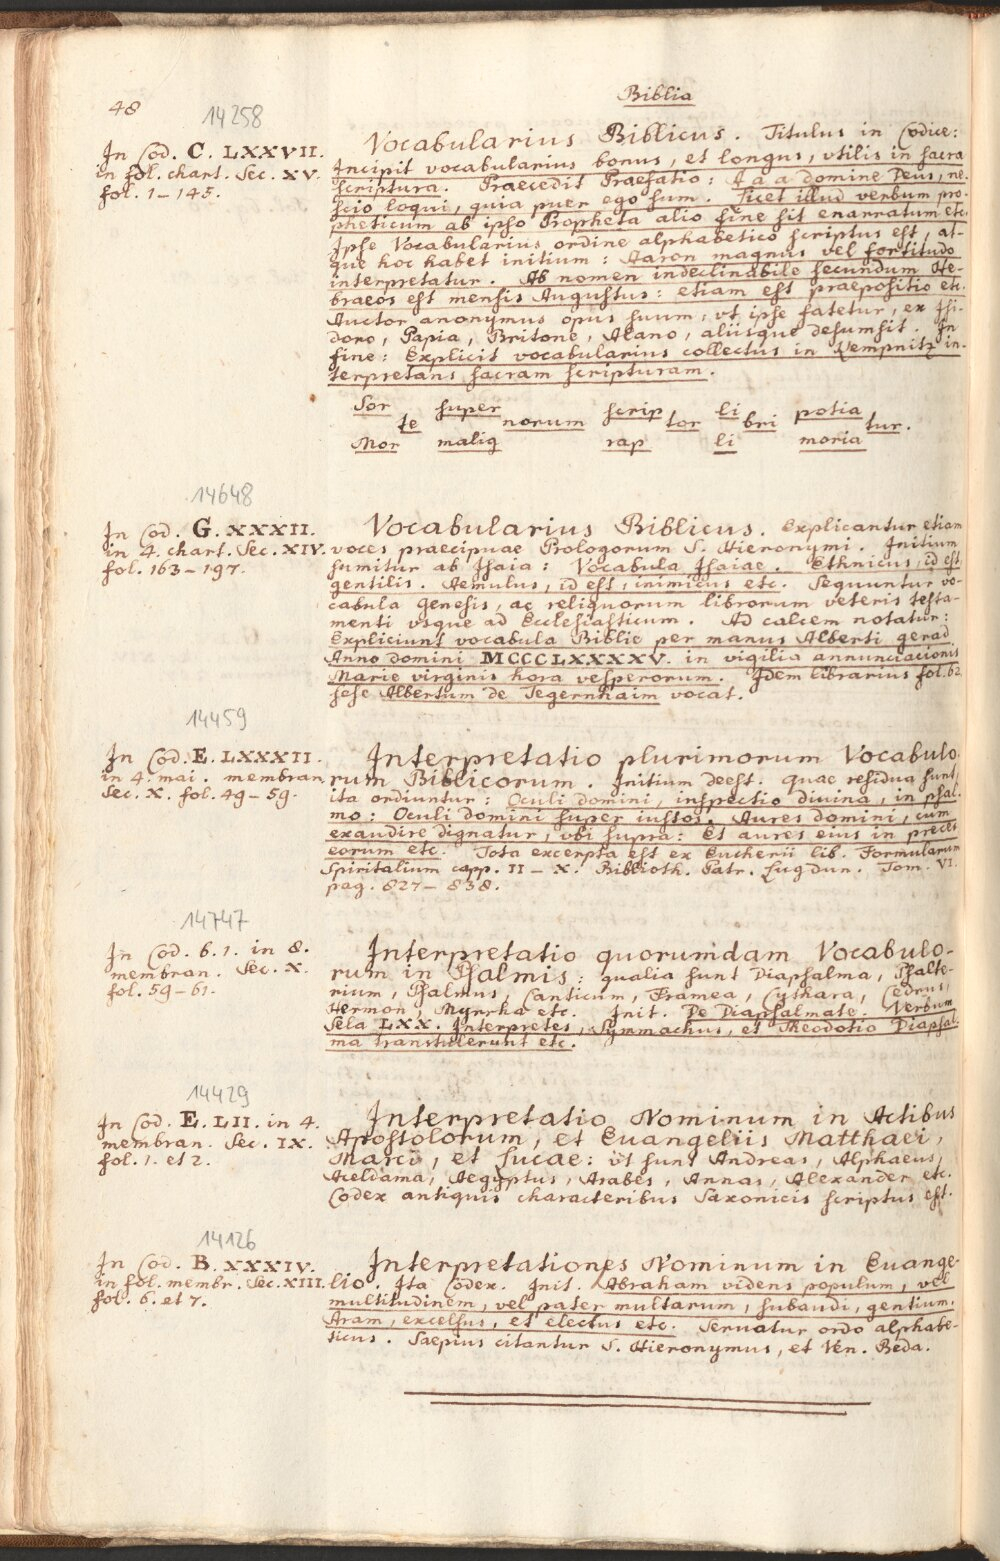 48
Biblia
14258
In Cod. C. LXXVII.
in fol. chart. Sec. XV.
fol. 1–145.
Vocabularius Biblicus. Titulus in Codice:
Incipit vocabularius bonus, et longus, vtilis in sacra
scriptura. Praecedit Praefatio: A a a domine Deus, ne-
scio loqui, quia puer ego sum. Licet illud verbum pro-
pheticum ab ipso Propheta alio fine sit enarratum etc.
Ipse Vocabularius ordine alphabetico scriptus est, at-
que hoc habet initium: Aaron magnus vel fortitudo
interpretatur. Ab nomen indeclinabile secundum He-
braeos est mensis Augustus: etiam est praepositio etc.
Auctor anonymus opus suum, vt ipse fatetur, ex Isi-
doro, Papia, Britone, Alano, aliisque desumsit. In
fine: Explicit vocabularius collectus in Kempnitz in-
terpretans sacram scripturam.
Sor super scrip li potia
te norum tor bri tur.
Mor malig rap li moria
14648
In Cod. G. XXXII.
in 4. chart. Sec. XIV.
fol. 163–197.
Vocabularius Biblicus. Explicantur etiam
voces praecipuae Prologorum S. Hieronymi. Initium
sumitur ab Isaia: Vocabula Isaiae. Ethnicus, id est,
gentilis. Aemulus, id est, inimicus etc. Sequuntur vo-
cabula Genesis, ac reliquorum librorum veteris testa-
menti vsque ad Ecclesiasticum. Ad calcem notatur:
Expliciunt vocabula Biblie per manus Alberti gerad
Anno domini MCCCLXXXXV. in vigilia annunciacionis
Marie virginis hora vesperorum. Idem librarius fol. 62
sese Albertum de Tegernhaim vocat.
14459
In Cod. E. LXXXII.
in 4. mai. membran.
Sec. X. fol. 49–59.
Interpretatio plurimorum Vocabulo-
rum Biblicorum. Initium deest. Quae residua sunt,
ita ordiuntur: Oculi domini, inspectio diuina, in psal-
mo: Oculi domini super iustos. Aures domini, cum
exaudire dignatur, vbi supra: Et aures eius in preces
eorum etc. Tota excerpta est ex Eucherii lib. Formularum
Spiritalium capp. II – X. Biblioth. Patr. Lugdun. Tom. VI.
pag. 827–838.
14747
In Cod. 6. 1. in 8.
membran. Sec. X.
fol. 59–61.
Interpretatio quorumdam Vocabulo-
rum in Psalmis: qualia sunt Diapsalma, Psalte-
rium, Psalmus, Canticum, Framea, Cythara, Cedrus,
Hermon, Myrrha etc. Init. De Diapsalmate. Verbum
Sela LXX. Interpretes, Symmachus, et Theodotio Diapsal-
ma transtulerunt etc.
14429
In Cod. E. LII. in 4.
membran. Sec. IX.
fol. 1. et 2.
Interpretatio Nominum in Actibus
Apostolorum, et Euangeliis Matthaei,
Marci, et Lucae: vt sunt Andreas, Alphaeus,
Aceldama, Aegyptus, Arabes, Annas, Alexander etc.
Codex antiquis characteribus Saxonicis scriptus est.
14126
In Cod. B. XXXIV.
in fol. membr. Sec. XIII.
fol. 6. et 7.
Interpretationes Nominum in Euange-
lio. Ita Codex. Init. Abraham videns populum, vel
multitudinem, vel pater multarum, subaudi, gentium.
Aram, excelsus, et electus etc. Seruatur ordo alphabe-
ticus. Saepius citantur S. Hieronymus, et Ven. Beda.